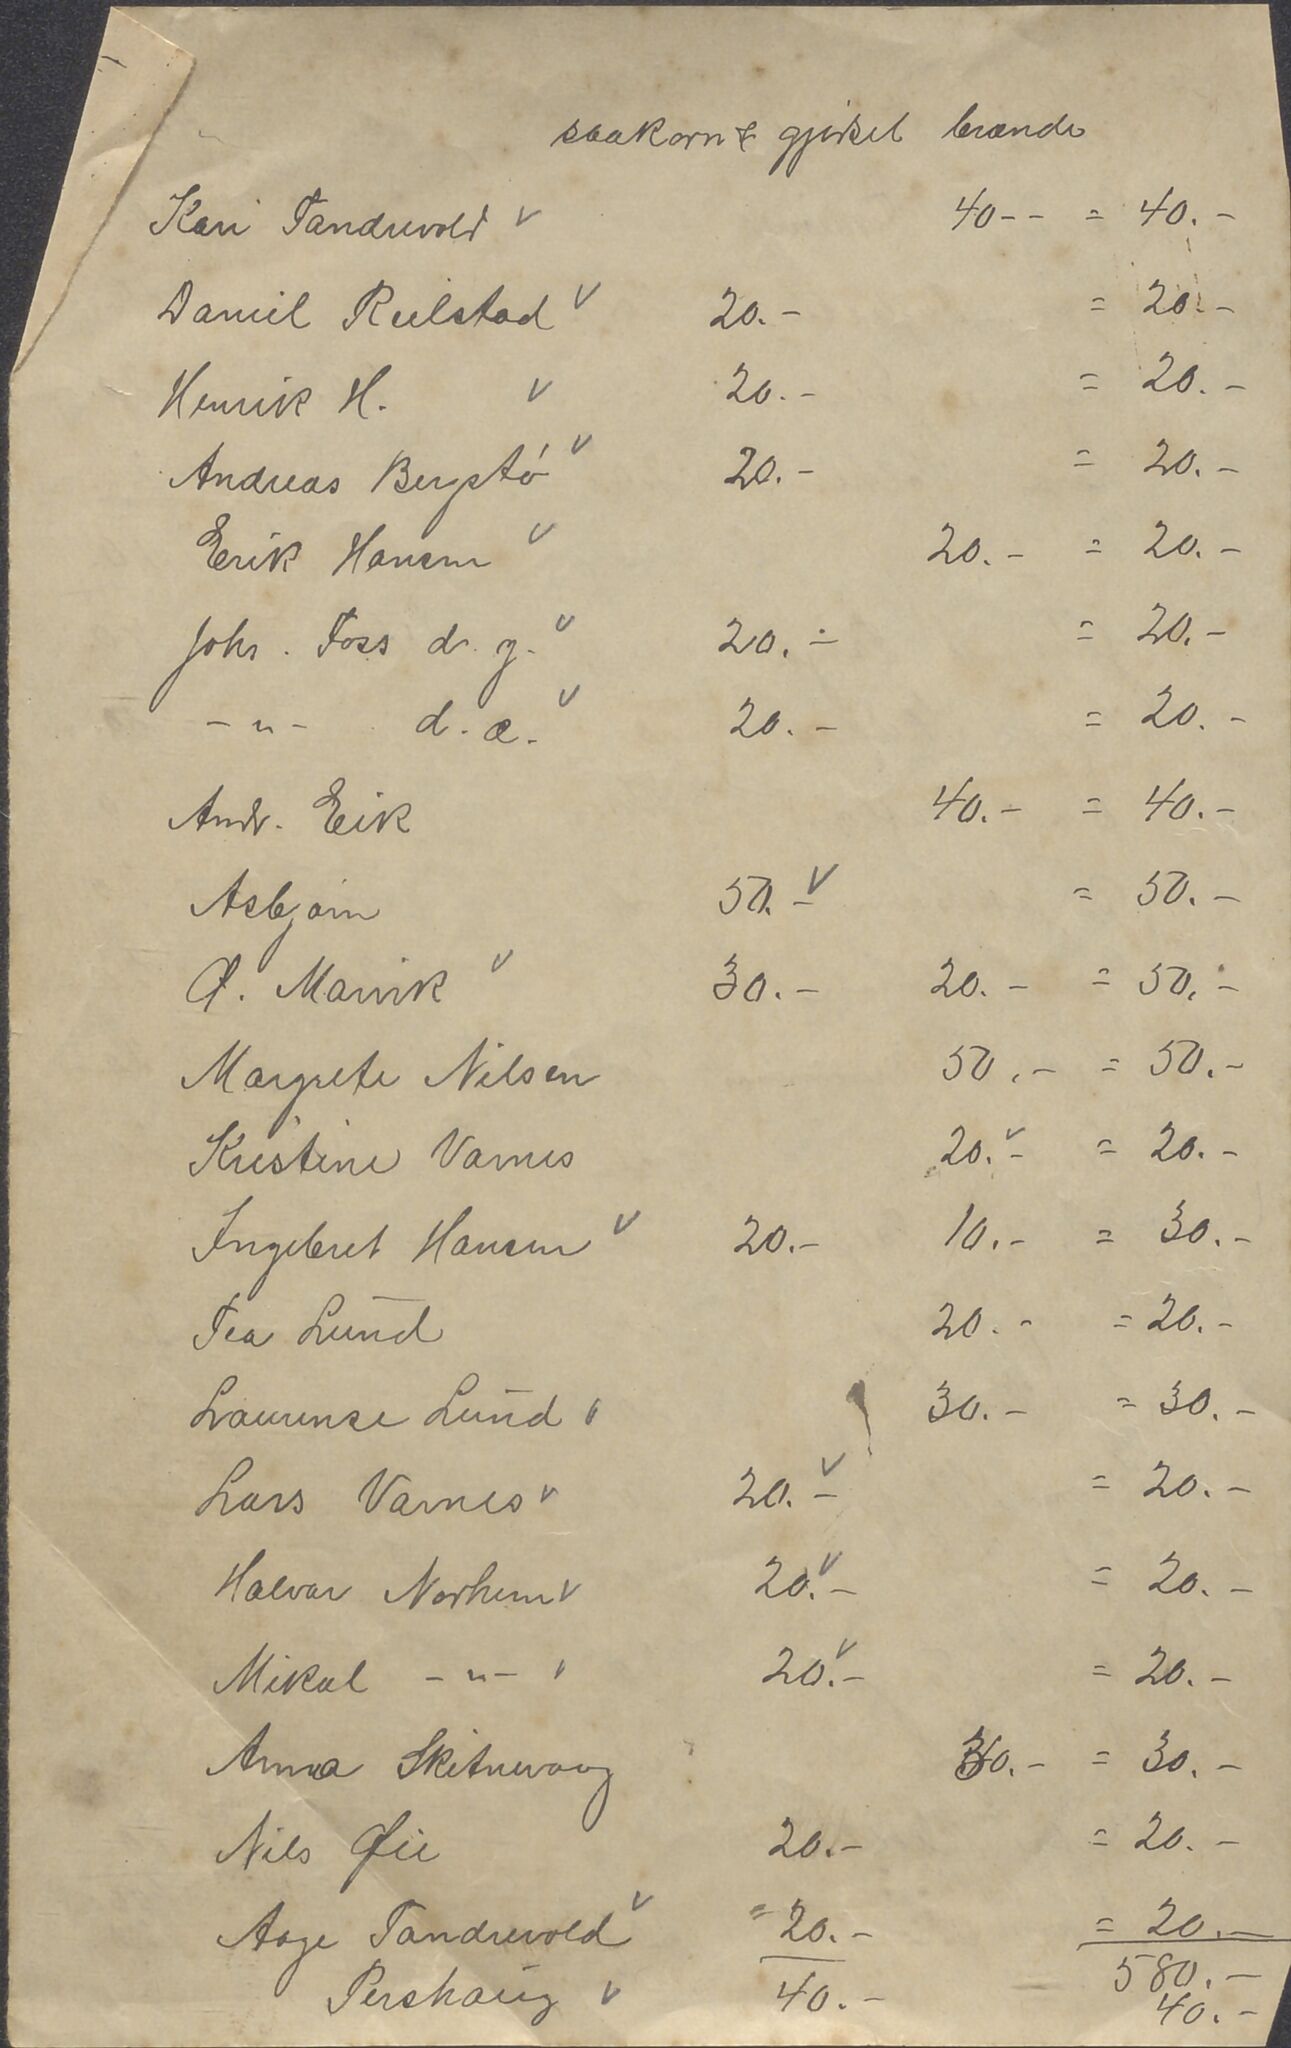 saakorn & gjødsel brænde
Kari Tandrevold v 40-- = 40.-
Daniel Reilstad v 20.- = 20.-
Henrik H. v 20.- = 20.-
Andreas Bergstø v 20.- = 20.-
Erik Hansen v 20.- = 20.-
Johs. Foss d. y. v 20.- = 20.-
-"- d. æ. v 20.- = 20.-
Andr. Eik 40.- = 40.-
Asbjørn 50.- v = 50.-
Ø. Marvik v 30.- 20.- = 50.-
Margrete Nilsen 50.- = 50.-
Kristine Varnes 20.- v = 20.-
Ingebret Hansen v 20.- 10.- = 30.-
Tea Lund 20.- = 20.-
Laurense Lund v 30.- = 30.-
Lars Varnes v 20.- v = 20.-
Halvar Norheim v 20.- v = 20.-
Mikal -"- v 20.- v = 20.-
Anna 30.- = 30.-
Nils Øie 20.- = 20.-
Aage Tandrevold v = 20.- = 20.-
580.-
Pershaug v 40.- 40.-